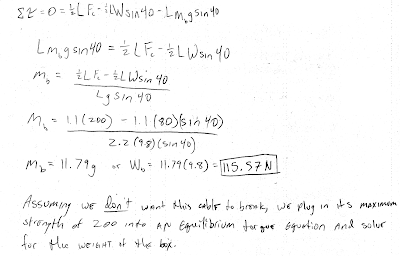 Στ = 0 = ½LFc - ½LWsin40 - Lm_b g sin40
Lm_b g sin40 = ½LFc - ½LWsin40
m_b = ½LFc - ½LWsin40 / Lg sin40
M_b = 1.1(200) - 1.1(80)(sin40) / 2.2(9.8)(sin40)
M_b = 11.79g or W_b = 11.79(9.8) = 115.57N
Assuming we don't want this cable to break, we plug in its maximum
strength of 200 into an equilibrium torque equation and solve
for the weight of the box.